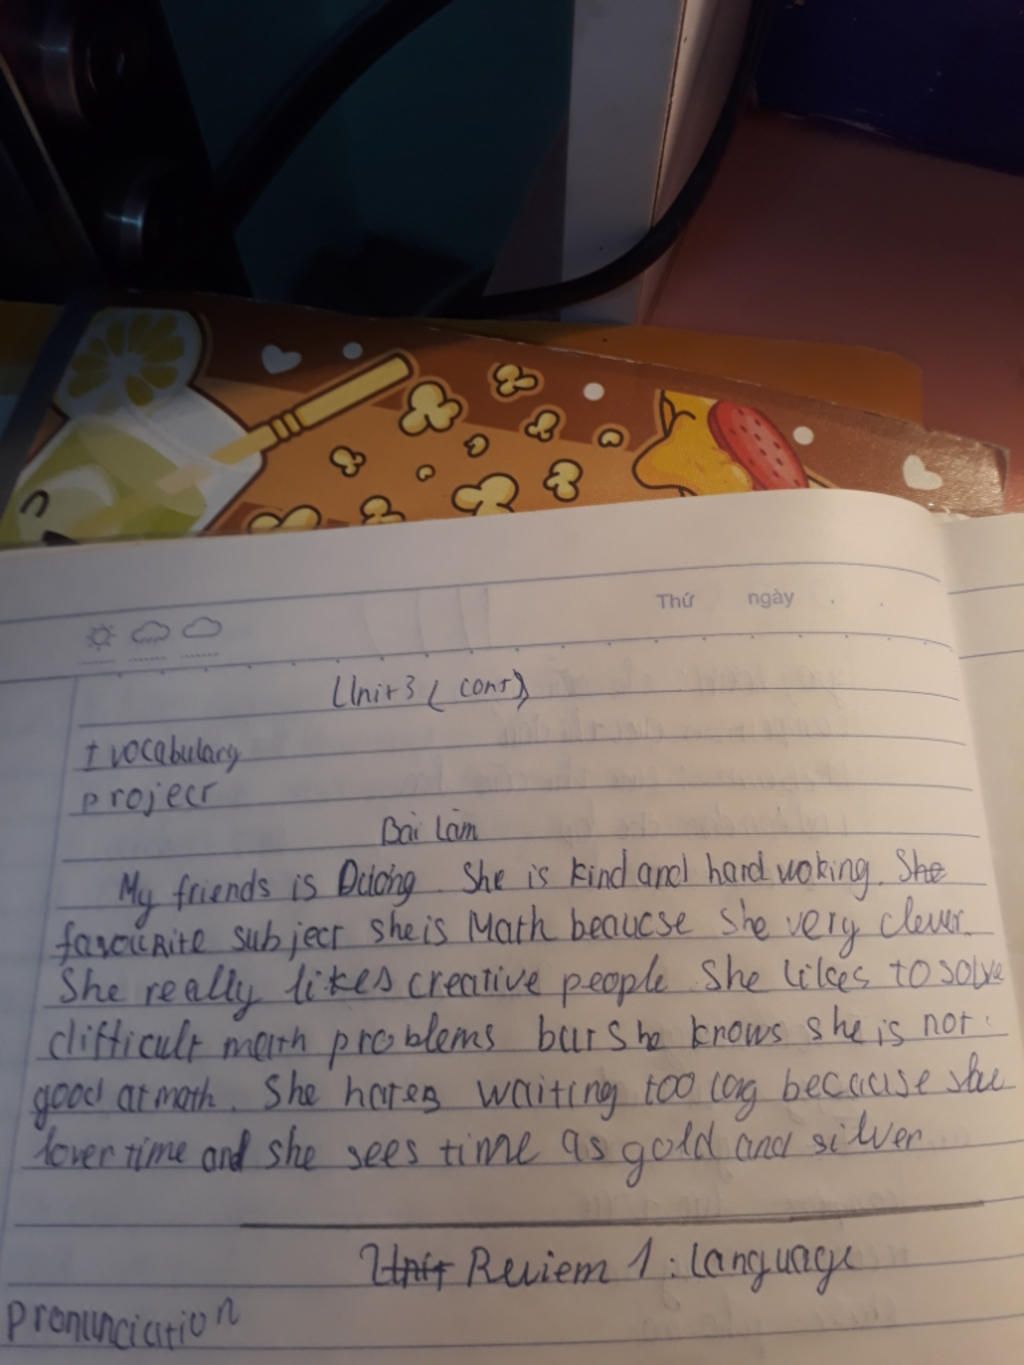 Thứ ngày
Unit 3 ( cont)
+ vocabulary
project
Bài làm
My friends is Dương. She is kind and hard woking. She
favourite subject she is Math beaucse she very clever.
She really likes creative people. She likes to solve
difficult math problems but she knows she is not
good at math. She hates waiting too long because she
lover time and she sees time as gold and silver
Unit Reviem 1 : Language
Pronunciation